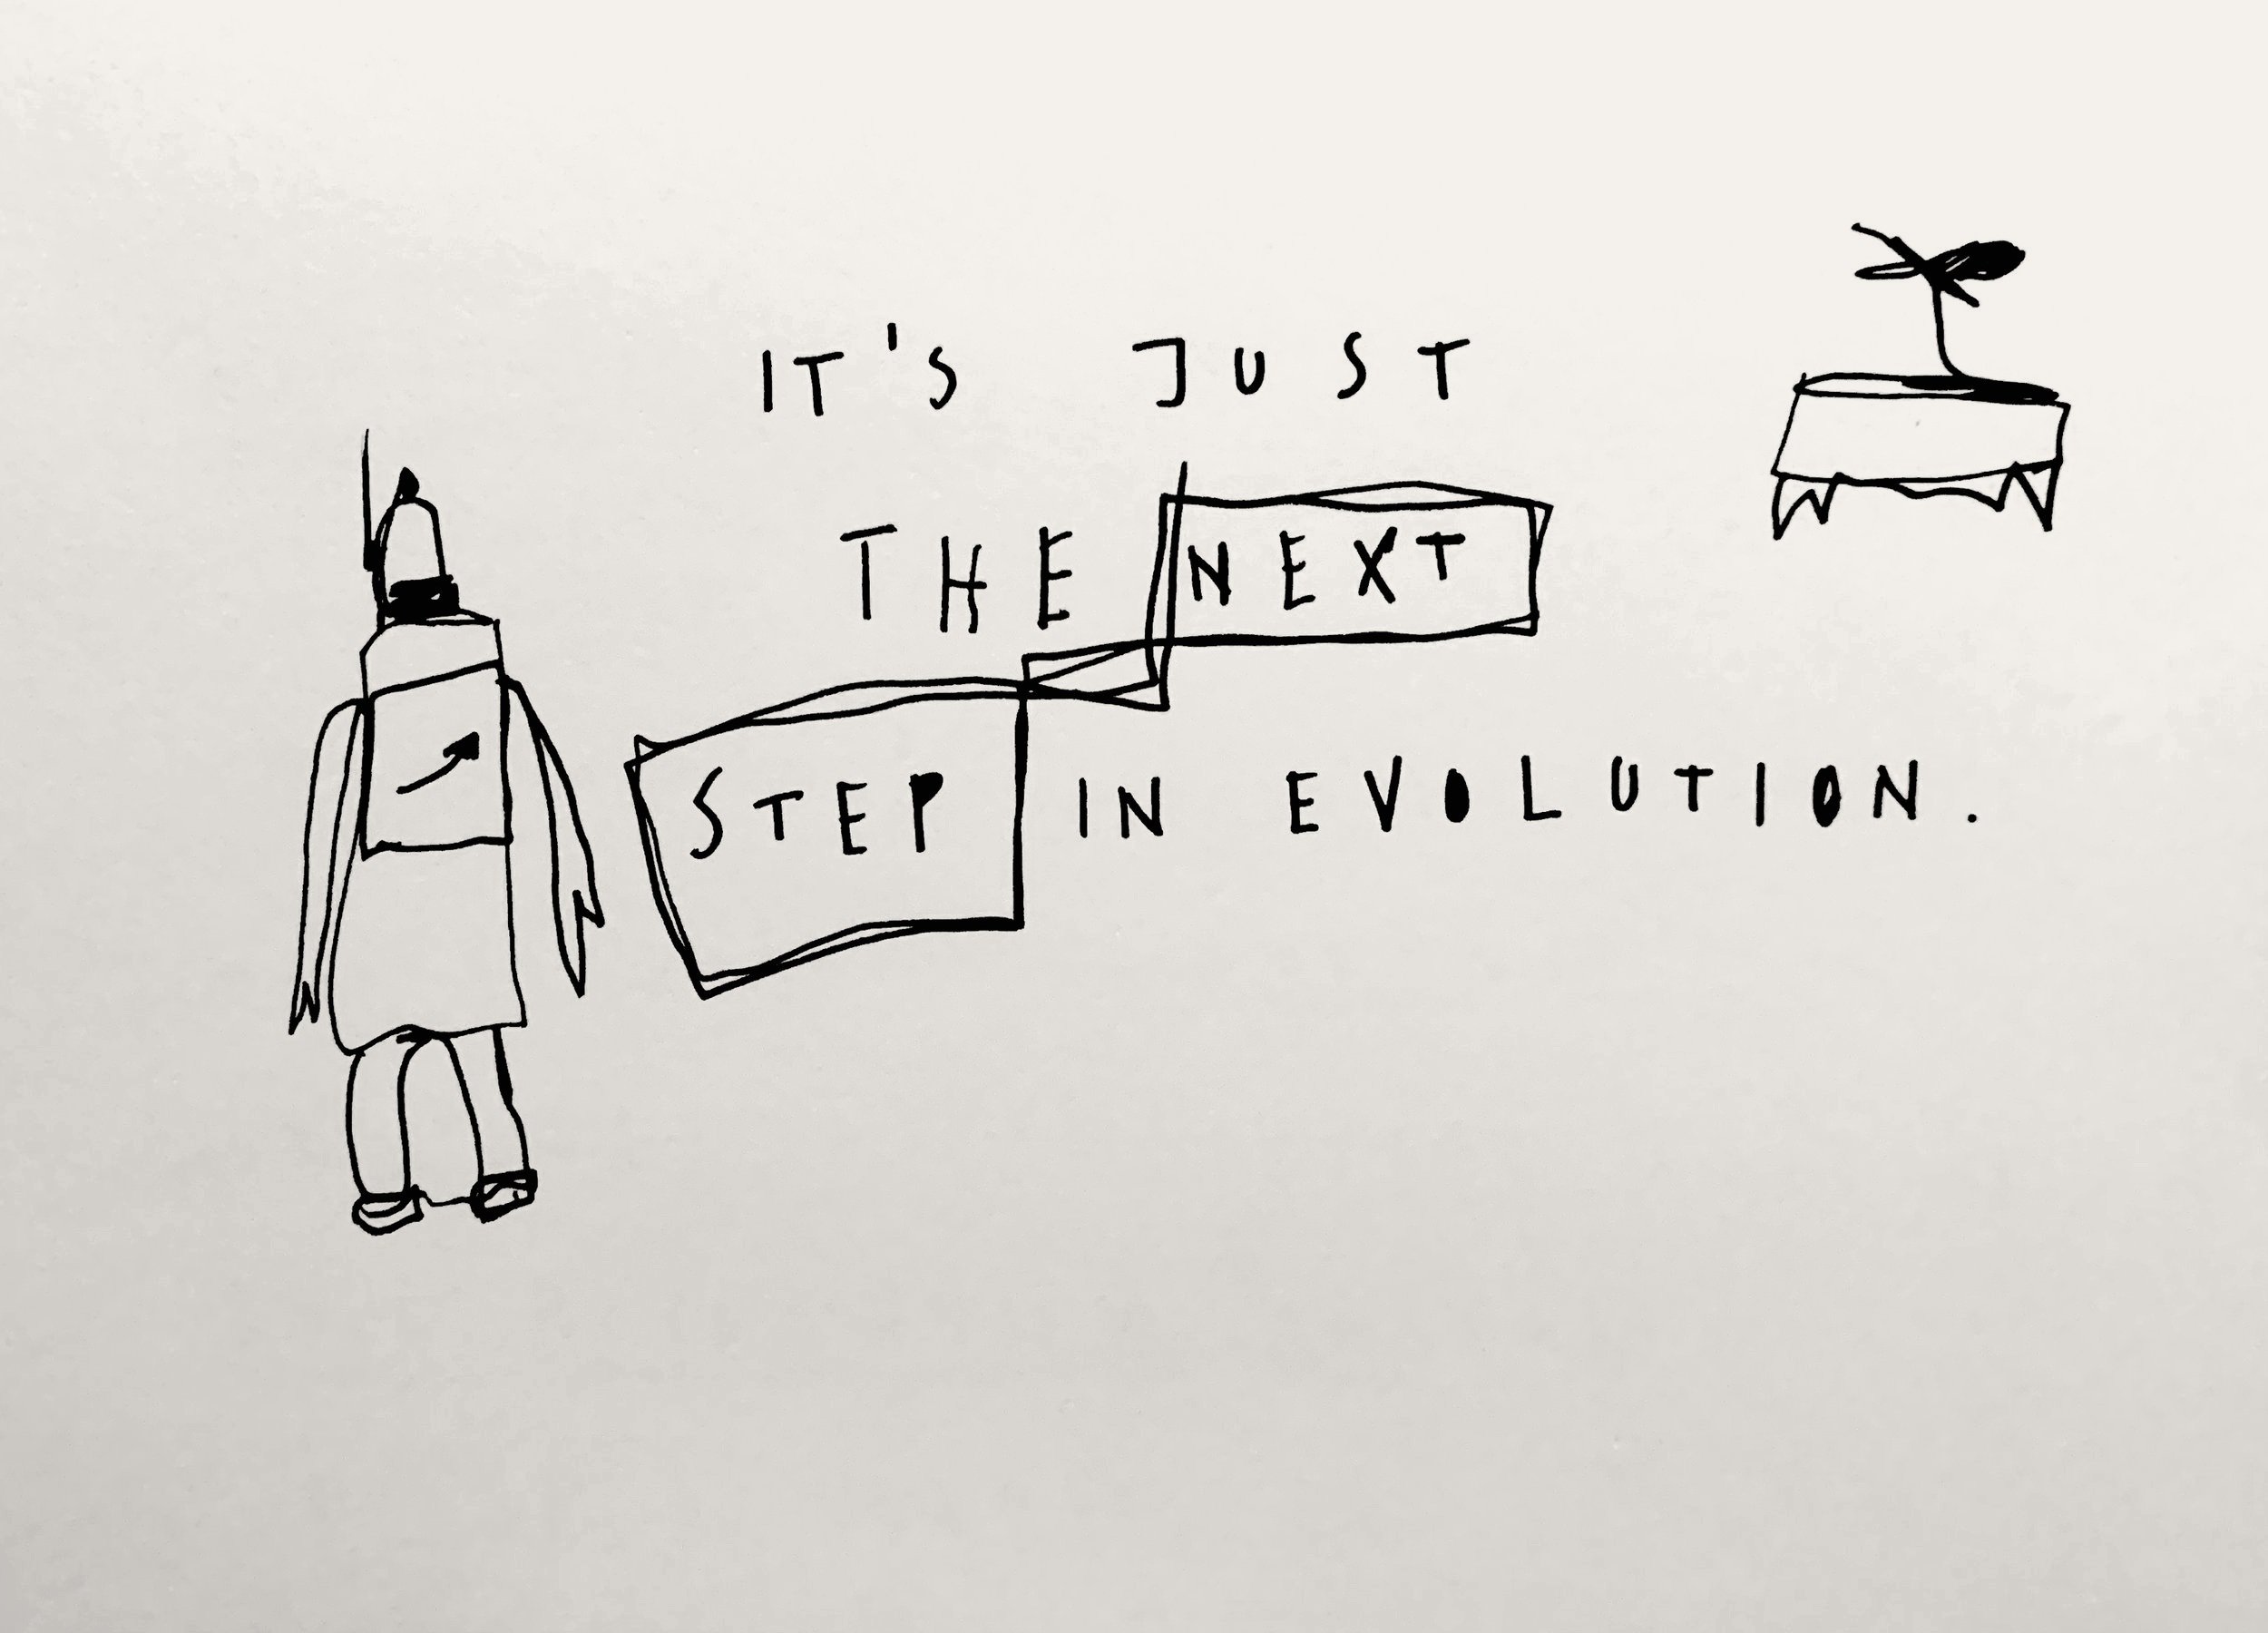 IT'S JUST
THE NEXT
STEP IN EVOLUTION.